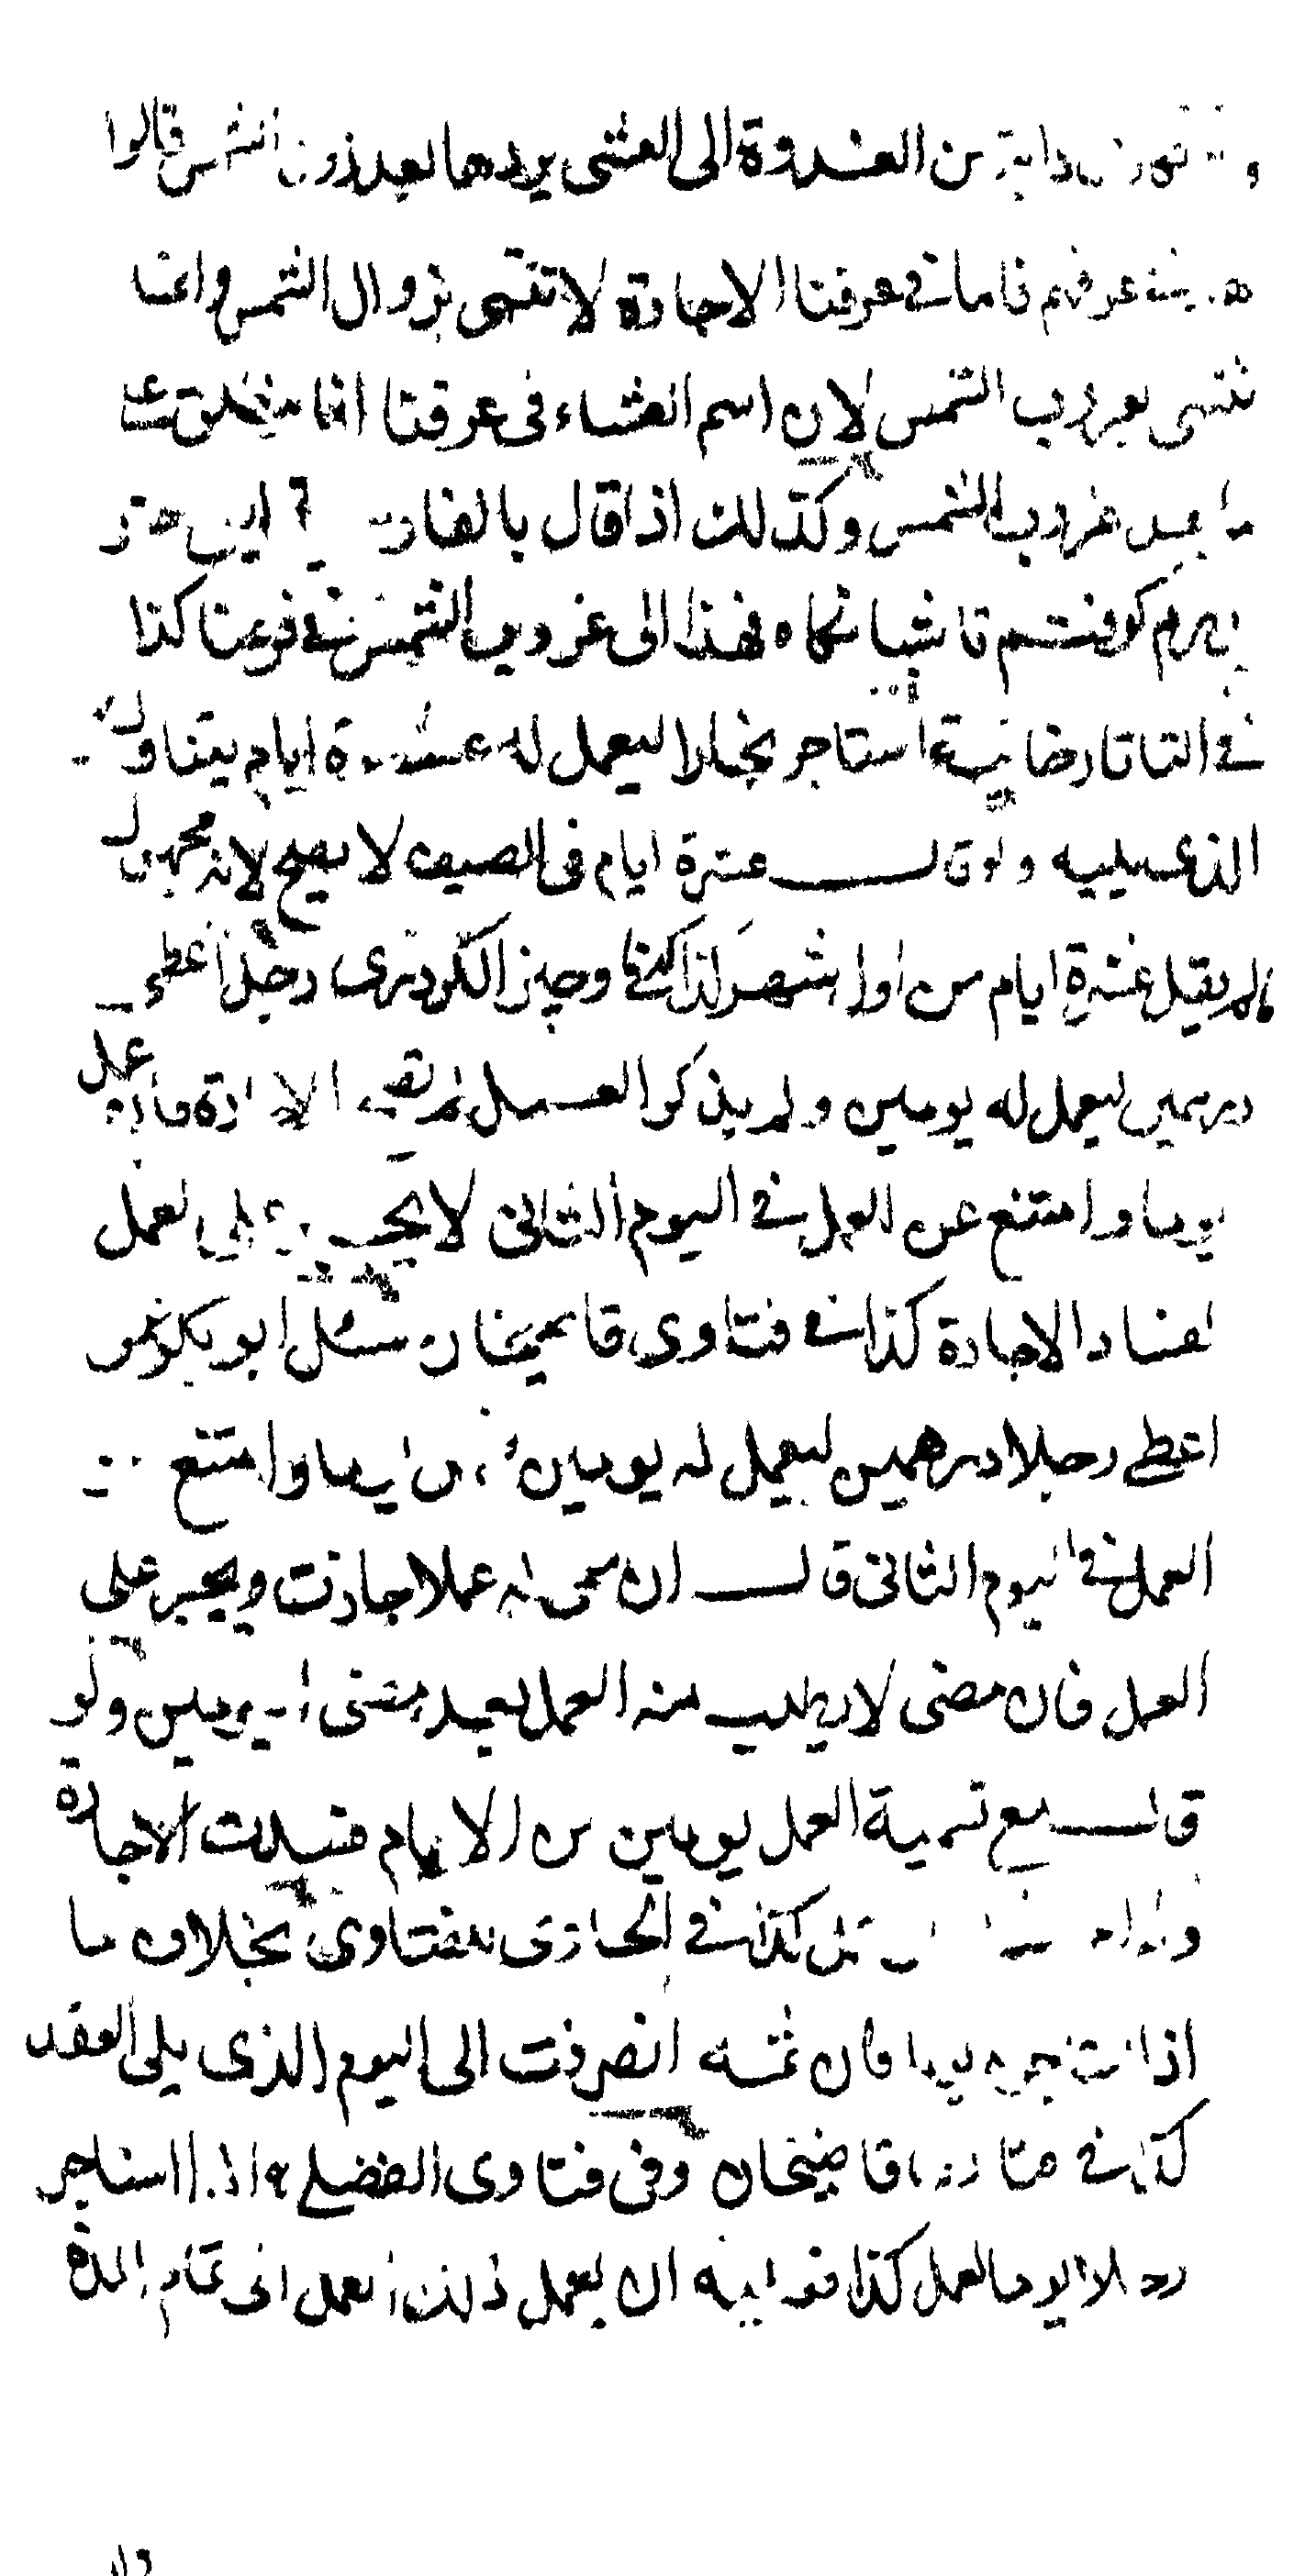 دابة من الغدوة الى العشى يردها بعد زوال الشمس قالوا
هذا فى عرفهم فاما فى عرفنا الاجارة لا تنتهى بزوال الشمس وانما
تنتهى بغروب الشمس لان اسم العشاء فى عرفنا انما ينطلق على
ما بعد غروب الشمس وكذلك اذا قال بالفارسية اين خر
بدرم كرفتم تا شبانكاه فهذا الى غروب الشمس فى عرفنا كذا
فى التاتارخانية استاجر نجارا ليعمل له عشرة ايام يتناول
الذى يليه ولو قال عشرة ايام فى الصيف لا يصح لانه مجهول
مالم يقل عشرة ايام من اول شهر كذا كذا فى وجيز الكردرى رجل اعطى
درهمين ليعمل له يومين ولم يذكر العمل لم تصح الاجارة فان عمل
يوما وامتنع عن العمل فى اليوم الثانى لا يجبر على العمل
لفساد الاجارة كذا فى فتاوى قاضيخان سئل ابو بكر عمن
اعطى رجلا درهمين ليعمل له يومين فعمل يوما وامتنع عن
العمل فى اليوم الثانى قال ان سمى له عملا جازت ويجبر على
العمل فان مضى لا يطلب منه العمل بعد مضى اليومين ولو
قال مع تسمية العمل يومين من الايام فسدت الاجارة
وله اجر مثله ان عمل كذا فى الحاوى للفتاوى بخلاف ما
اذا استاجره يوما فان ثمه انصرفت الى اليوم الذى يلى العقد
كذا فى فتاوى قاضيخان وفى فتاوى الفضلى واذا استاجر
رجلا يوما لعمل كذا فعليه ان يعمل ذلك العمل الى تمام المدة